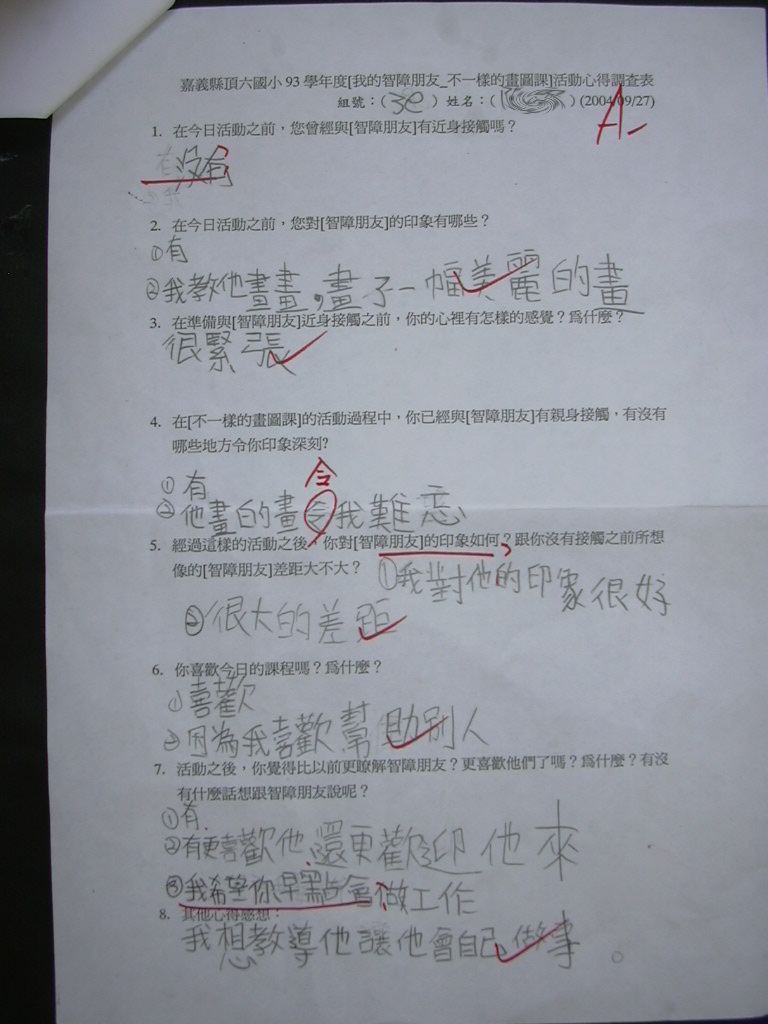 嘉義縣頂六國小93學年度[我的智障朋友_不一樣的畫圖課]活動心得調查表
組號：( 3e ) 姓名：( ) (2004/09/27)
A-
1. 在今日活動之前，您曾經與[智障朋友]有近身接觸嗎？
沒有
2. 在今日活動之前，您對[智障朋友]的印象有哪些？
①有
②我教他畫畫，畫了一幅美麗的畫
3. 在準備與[智障朋友]近身接觸之前，你的心裡有怎樣的感覺？為什麼？
很緊張
4. 在[不一樣的畫圖課]的活動過程中，你已經與[智障朋友]有親身接觸，有沒有
哪些地方令你印象深刻?
①有
令
②他畫的畫令我難忘
5. 經過這樣的活動之後，你對[智障朋友]的印象如何？跟你沒有接觸之前所想
像的[智障朋友]差距大不大？ ①我對他的印象很好
②很大的差距
6. 你喜歡今日的課程嗎？為什麼？
①喜歡
②因為我喜歡幫助別人
7. 活動之後，你覺得比以前更瞭解智障朋友？更喜歡他們了嗎？為什麼？有沒
有什麼話想跟智障朋友說呢？
①有
②有更喜歡他，還更歡迎他來
③我希望你早點會做工作
8. 其他心得感想：
我想教導他讓他會自己做事。